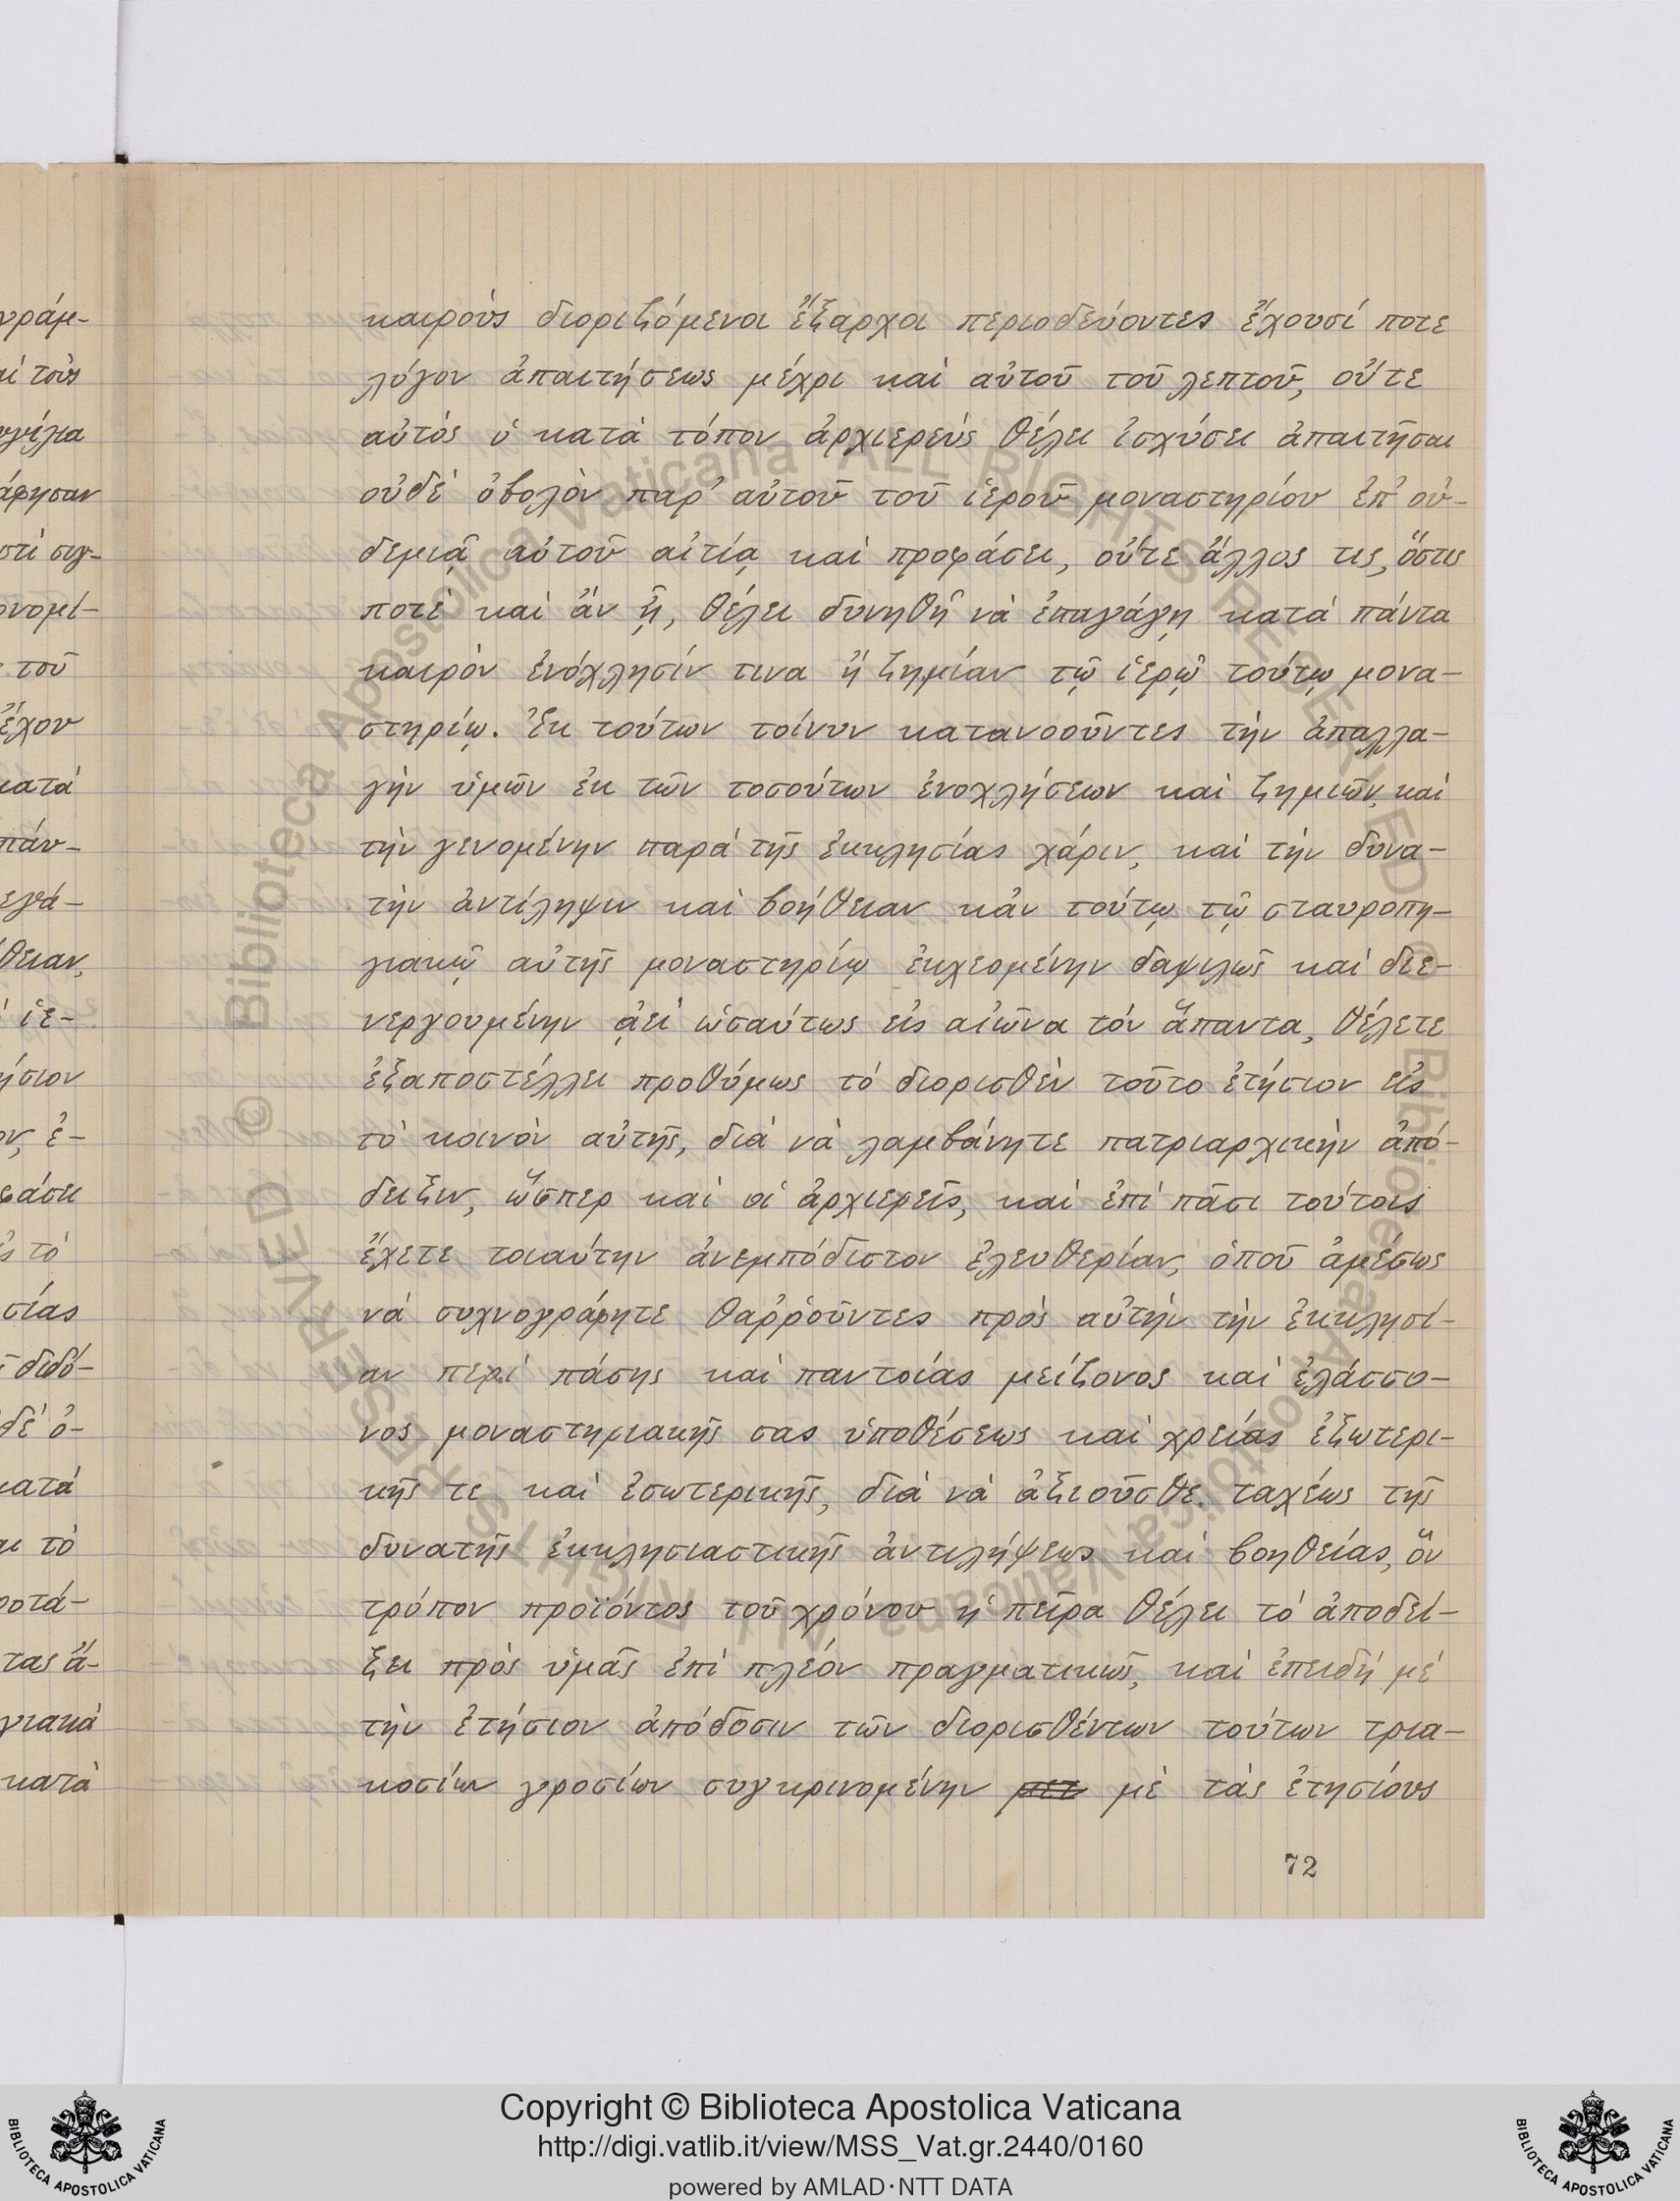 καιροὺς διοριζόμενοι ἔξαρχοι περιοδεύοντες ἔχουσί ποτε
λόγον ἀπαιτήσεως μέχρι καὶ αὐτοῦ τοῦ λεπτοῦ, οὔτε
αὐτὸς ὁ κατὰ τόπον ἀρχιερεὺς θέλει ἰσχύσει ἀπαιτῆσαι
οὐδὲ ὀβολὸν παρ' αὐτοῦ τοῦ ἱεροῦ μοναστηρίου ἐπ' οὐ-
δεμιᾷ αὐτοῦ αἰτίᾳ καὶ προφάσει, οὔτε ἄλλος τις, ὅστις
ποτὲ καὶ ἂν ᾖ, θέλει δυνηθῆ νὰ ἐπαγάγῃ κατὰ πάντα
καιρὸν ἐνόχλησίν τινα ἢ ζημίαν τῷ ἱερῷ τούτῳ μονα-
στηρίῳ. Ἐκ τούτων τοίνυν κατανοοῦντες τὴν ἀπαλλα-
γὴν ὑμῶν ἐκ τῶν τοσούτων ἐνοχλήσεων καὶ ζημιῶν, καὶ
τὴν γενομένην παρὰ τῆς ἐκκλησίας χάριν, καὶ τὴν δυνα-
τὴν ἀντίληψιν καὶ βοήθειαν κἀν τούτῳ τῷ σταυροπη-
γιακῷ αὐτῆς μοναστηρίῳ ἐκχεομένην δαψιλῶς καὶ διε-
νεργουμένην ἀεὶ ὡσαύτως εἰς αἰῶνα τὸν ἅπαντα, θέλετε
ἐξαποστέλλει προθύμως τὸ διορισθὲν τοῦτο ἐτήσιον εἰς
τὸ κοινὸν αὐτῆς, διὰ νὰ λαμβάνητε πατριαρχικὴν ἀπό-
δειξιν, ὥσπερ καὶ οἱ ἀρχιερεῖς, καὶ ἐπὶ πᾶσι τούτοις
ἔχετε τοιαύτην ἀνεμπόδιστον ἐλευθερίαν, ὁποῦ ἀμέσως
νὰ συχνογράφητε θαῤῥοῦντες πρὸς αὐτὴν τὴν ἐκκλησί-
αν περὶ πάσης καὶ παντοίας μείζονος καὶ ἐλάσσο-
νος μοναστηριακῆς σας ὑποθέσεως καὶ χρείας ἐξωτερι-
κῆς τε καὶ ἐσωτερικῆς, διὰ νὰ ἀξιοῦσθε ταχέως τῆς
δυνατῆς ἐκκλησιαστικῆς ἀντιλήψεως καὶ βοηθείας, ὃν
τρόπον προϊόντος τοῦ χρόνου ἡ πεῖρα θέλει τὸ ἀποδεί-
ξει πρὸς ὑμᾶς ἐπὶ πλέον πραγματικῶς, καὶ ἐπειδὴ μὲ
τὴν ἐτήσιον ἀπόδοσιν τῶν διορισθέντων τούτων τρια-
κοσίων γροσίων συγκρινομένην μὲ τὰς ἐτησίους
72
Copyright © Biblioteca Apostolica Vaticana
http://digi.vatlib.it/view/MSS_Vat.gr.2440/0160
powered by AMLAD·NTT DATA
BIBLIOTECA APOSTOLICA VATICANA
BIBLIOTECA APOSTOLICA VATICANA